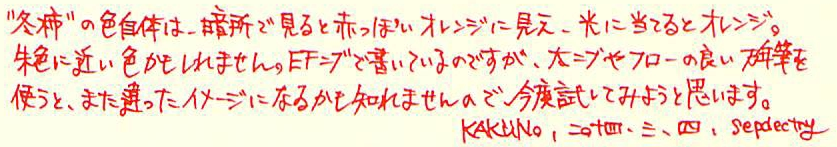 "冬柿"の色自体は、暗所で見ると赤っぽいオレンジに見え、光に当てるとオレンジ。
朱色に近い色かもしれません。EFニブで書いているのですが、太ニブやフローの良い万年筆を
使うと、また違ったイメージになるかも知れませんので、今度試してみようと思います。
KAKUNO, 二〇十四、三、四,